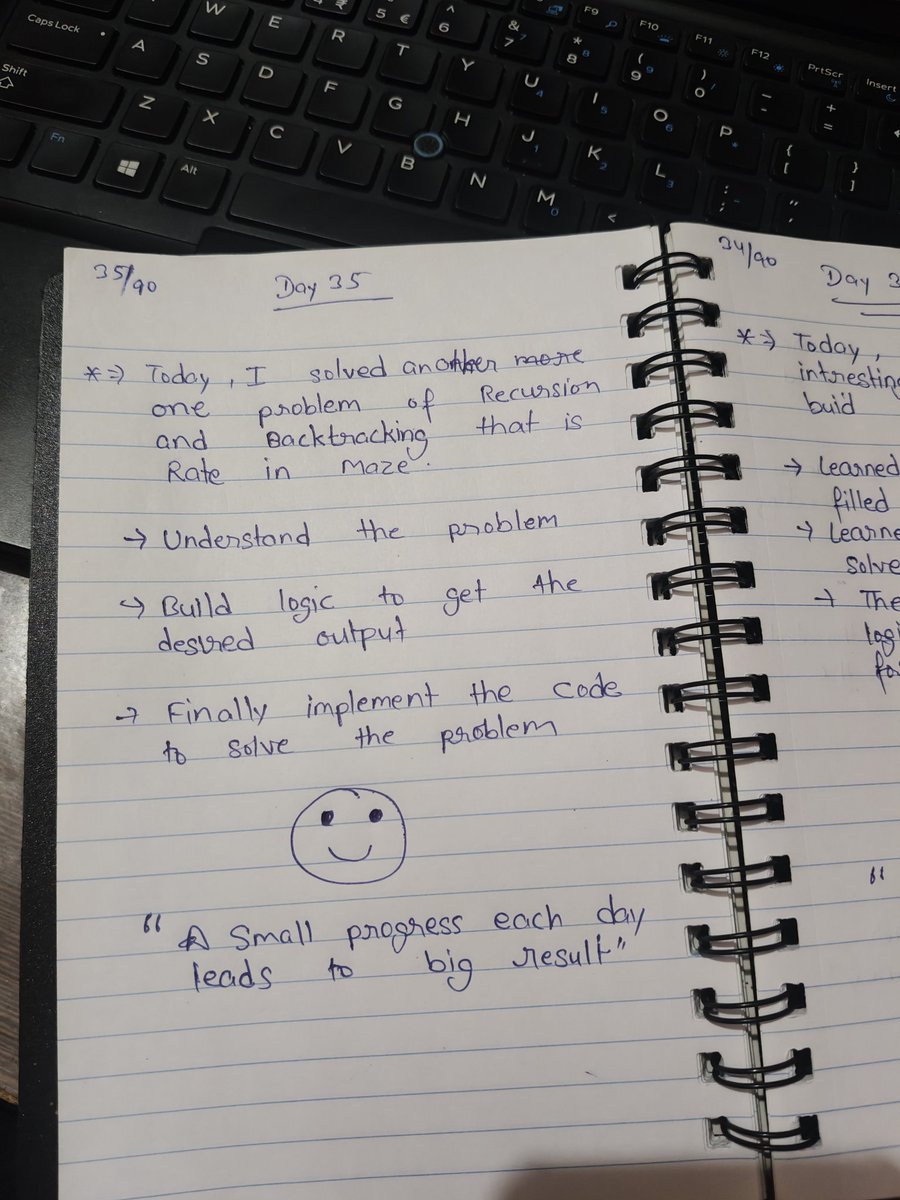 Caps Lock
A
S
D
F
G
H
J 1
K 2
L 3
: ;
" '
Shift
Z
X
C
V
B
N
M 0
<
Fn
Alt
W
E
R
T
Y
U 4
I 5
O 6
P *
{ [
} ]
5 €
^ 6
& 7 7
* 8 8
( 9 9
) 0
- -
+ =
F9
F10
F11
F12
PrtScr
Insert
35/90
Day 35
*⇒ Today, I solved another more
one problem of Recursion
and Backtracking that is
Rate in Maze.
→ Understand the problem
→ Build logic to get the
desired output
→ Finally implement the code
to solve the problem
“ A Small progress each day
leads to big result”
34/90
Day 3
*⇒ Today,
intresting
buid
→ Learned
filled
→ Learne
solve
→ The
logi
“